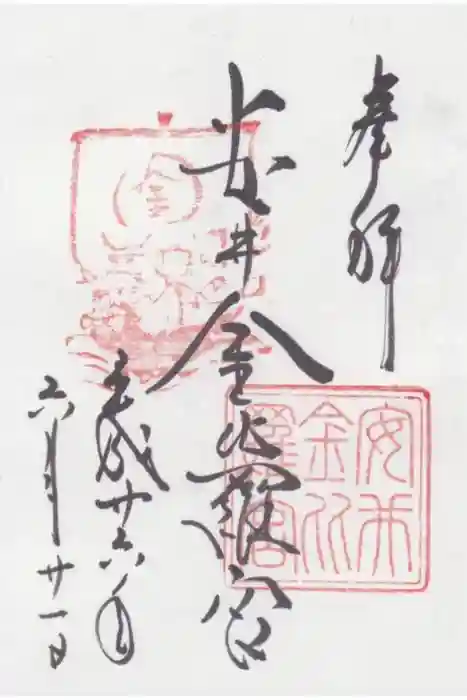 奉拝
安井金比羅宮
安井
金比
羅宮
金
平成廿六年
六月廿一日